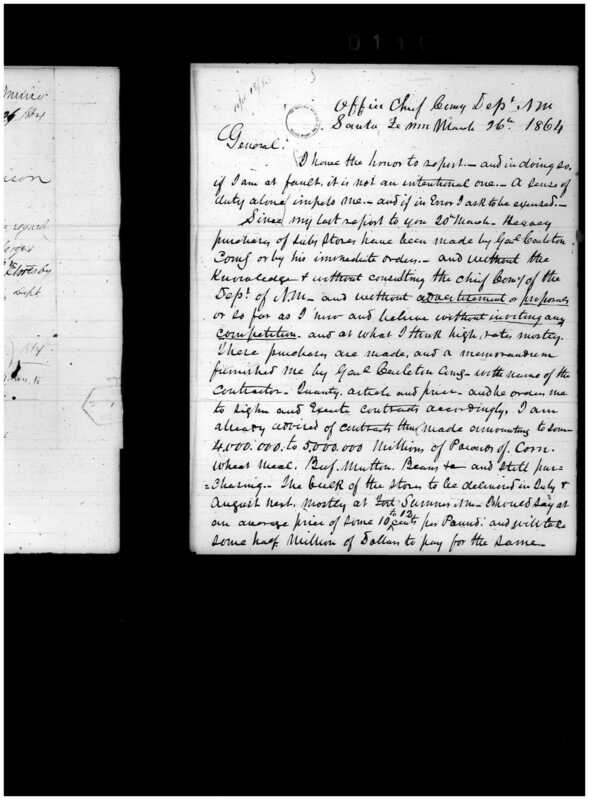 Office Chief Comy Dept N.M
Santa Fe NM March 26th 1864
General:
I have the honor to report.- and in doing so,
if I am at fault, it is not an intentional one.- A sense of
duty alone impels me.- and if in Error I ask to be excused.-
Since my last report to you 20th March - Heavy
purchases of Subs Stores have been made by Genl Carleton
Comg or by his immediate orders.- and without the
Knowledge & without consulting the Chief Comy of the
Dept of N.M - and without advertisement or proposals
or so far as I now and believe without inviting any
competition. and at what I think high rates mostly.
These purchases are made, and a memorandum
furnished me by Genl Carleton Comg - with name of the
Contractor - Quanty. article and price - and he orders me
to sighn and Execute contracts accordingly. I am
already advised of contracts thus made amounting to some
4,000,000, to 5,000,000 Millions of Pounds of. Corn.
Wheat Meal. Beef. Mutton. Beans &c - and still pur=
=chasing - The bulk of the stores to be delivered in July &
August next, mostly at Fort Sumner N.M - I should say at
an average price of some 10 to 12 cents per Pound: and will take
some half Million of Dollars to pay for the same -
ison
regard
Dept